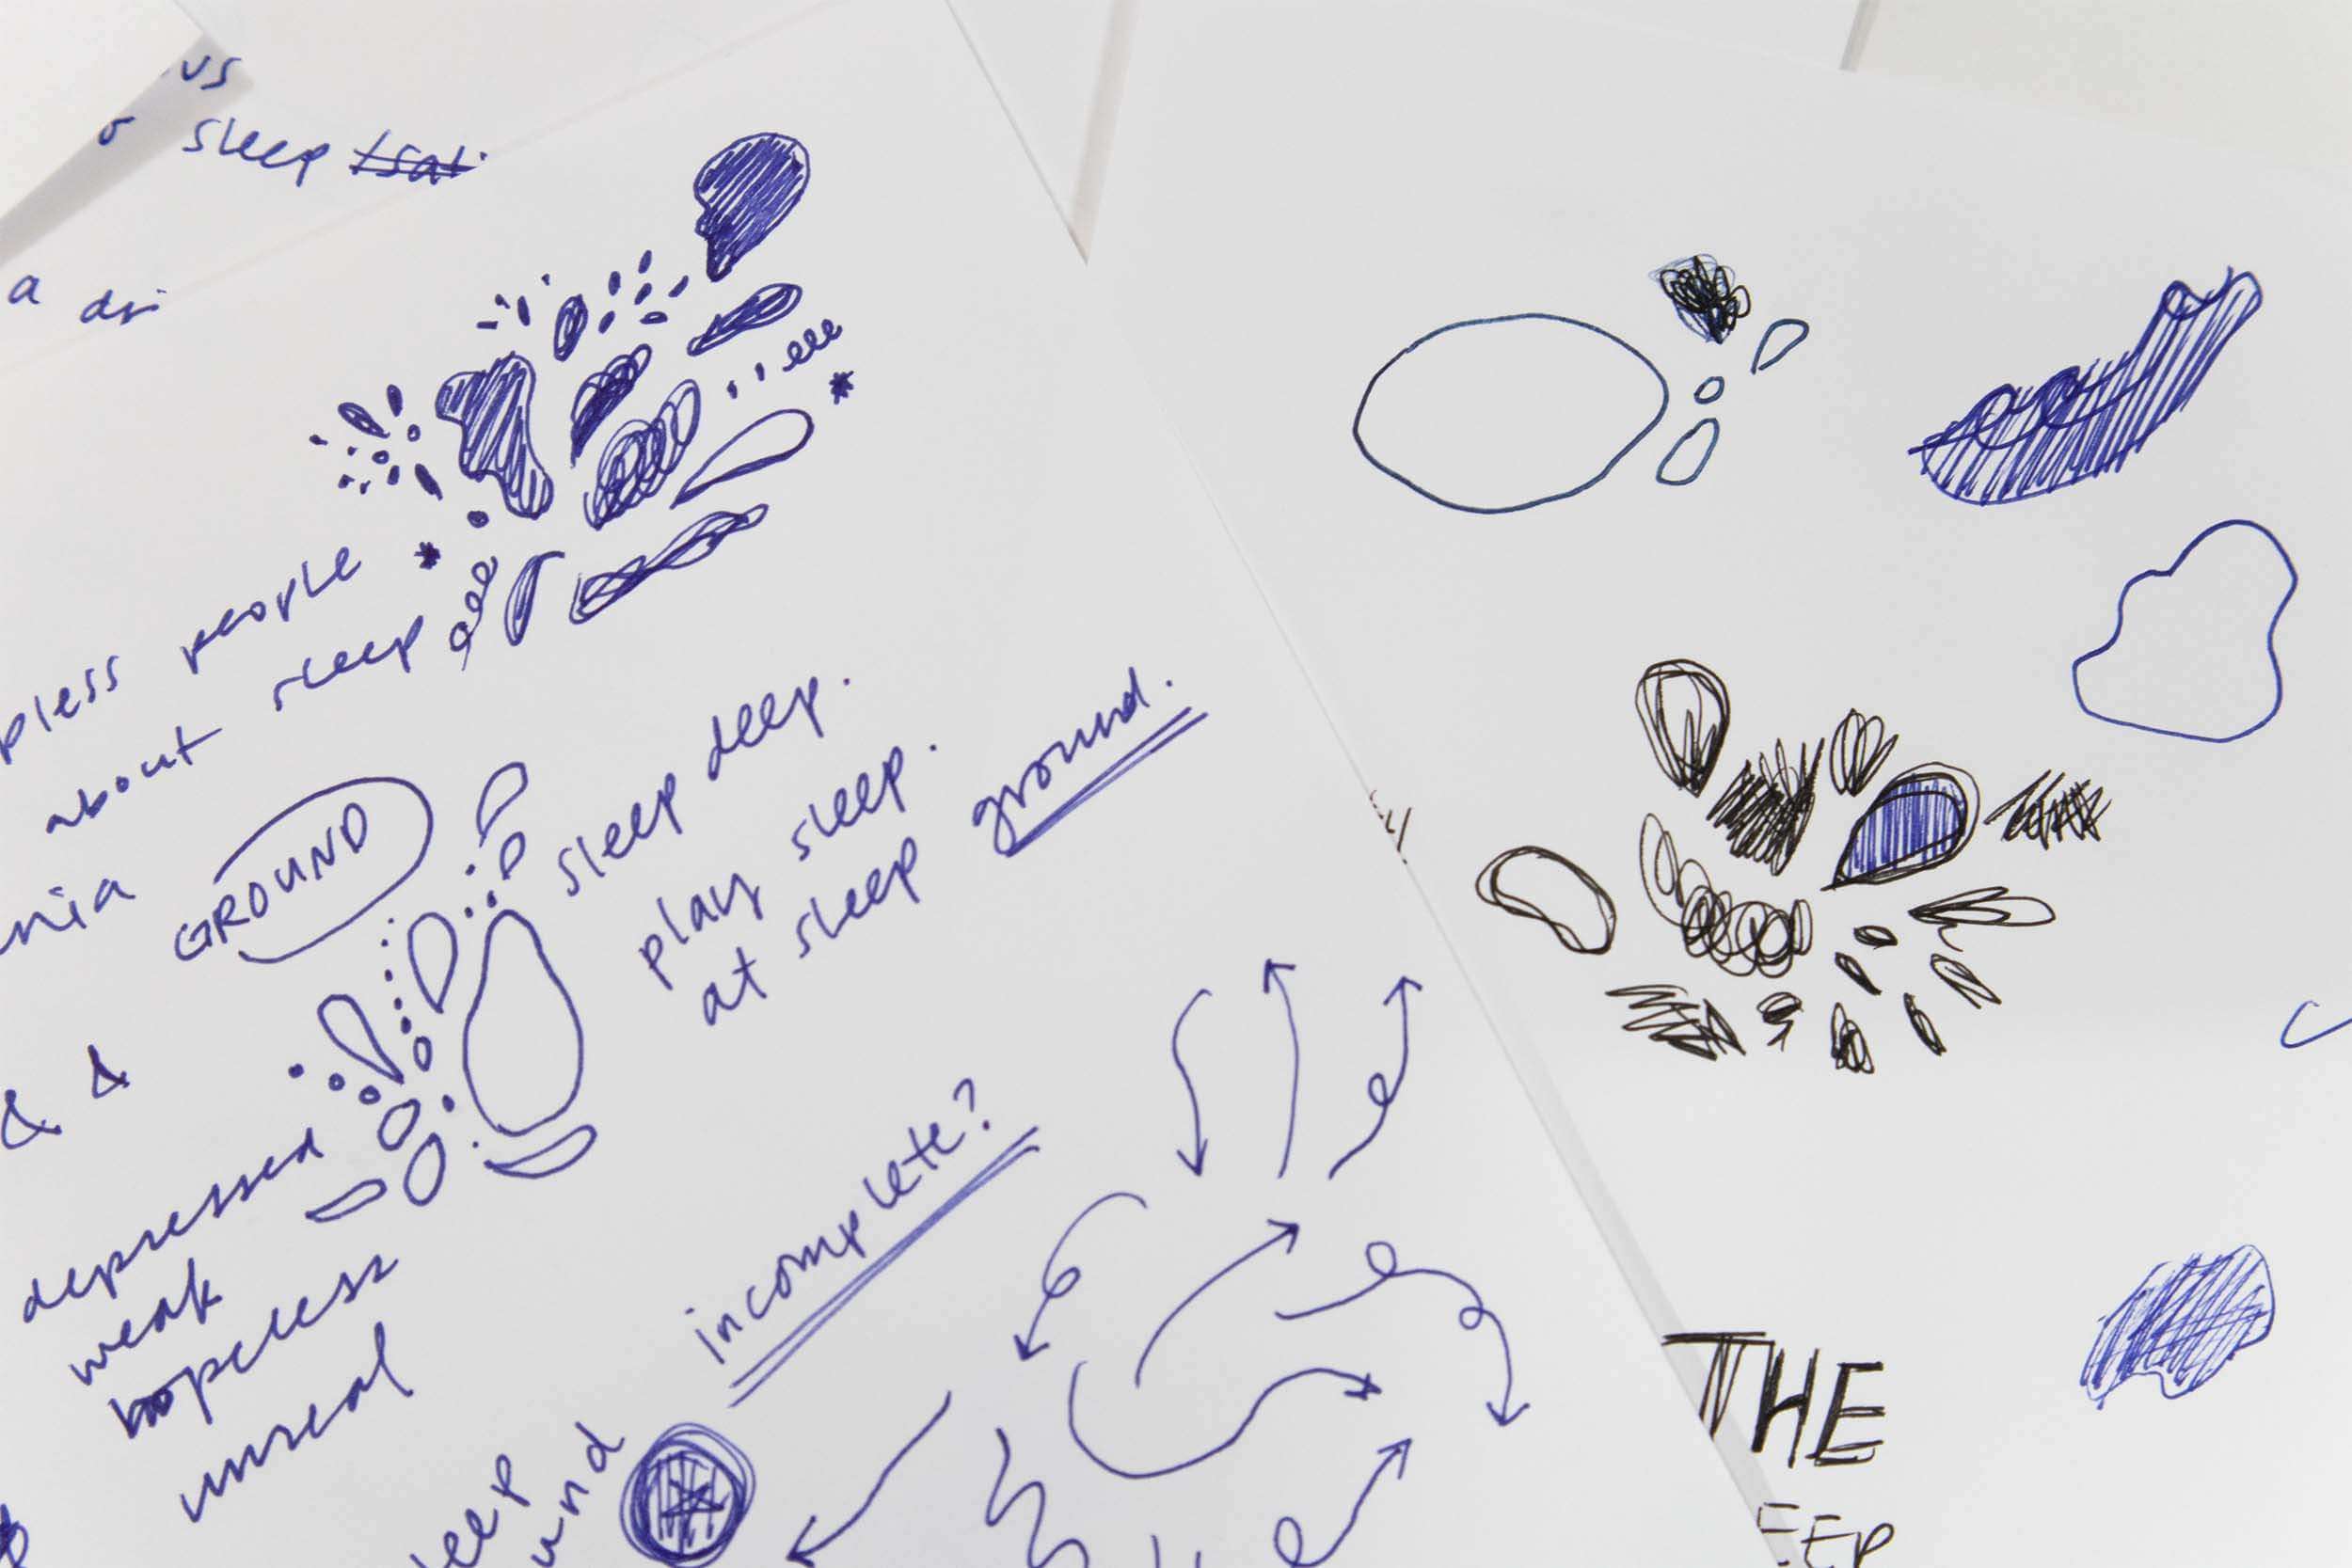 sleep
a
people
about sleep
GROUND
sleep deep.
play sleep.
at sleep ground.
& &
depressed
weak
hopeless
unreal
incomplete?
THE